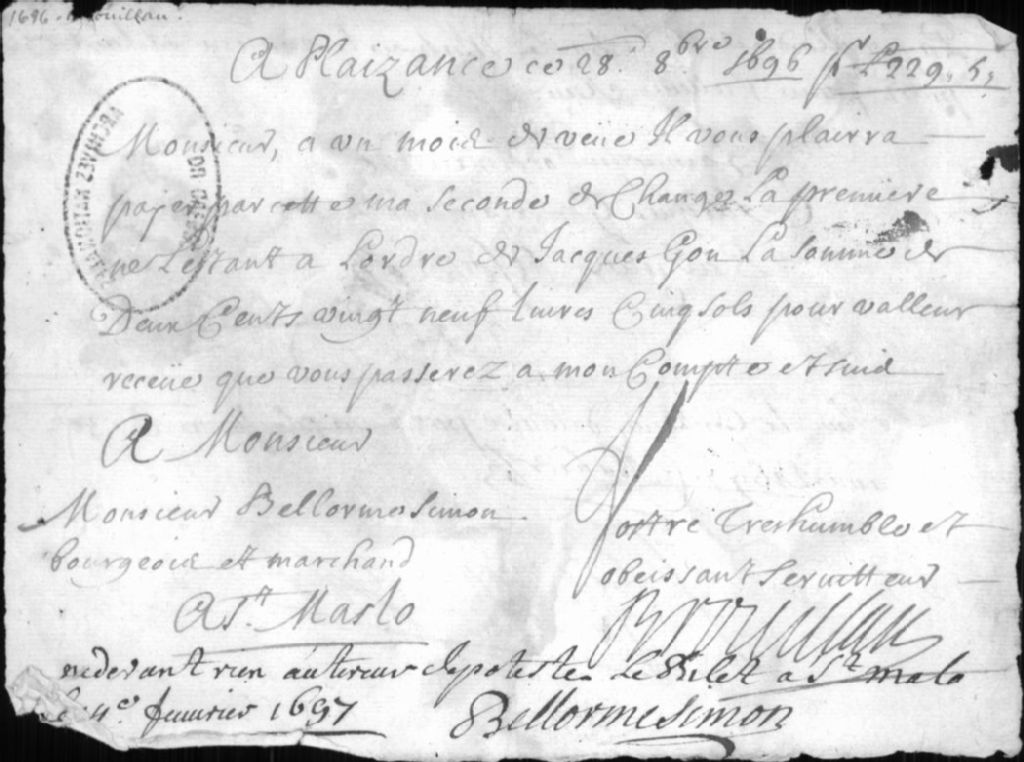 1696
A Plaizance ce 28. 8bre 1696 pr L 229, 5s
ARCHIVES NATIONALES
Monsieur, a un mois de veüe Il vous plairra
payer par cette ma seconde de Change La premiere
ne L'estant a L'ordre de Jacques Gon La somme de
Deux Cents vingt neuf livres Cinq sols pour valleur
receüe que vous passerez a mon Compte et suis
A Monsieur
Monsieur Bellorme simon
bourgeois et marchand
A St. Maslo
Vostre Tres humble et
obeissant Serviteur
Brouillan
ne devant rien au tireur Je proteste Le Billet a St malo
Le 4e feuvrier 1697
Bellormesimon